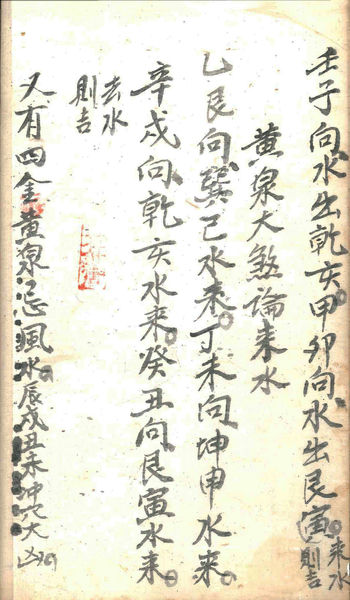 壬子向水出乾亥甲卯向水出艮寅來水則吉
黄泉大煞論来水
乙艮向巽己水来丁未向坤申水来
辛戍向乾亥水来癸丑向艮寅水来
去水則吉
又有四金黄泉忌風水辰戍丑未冲穴大凶